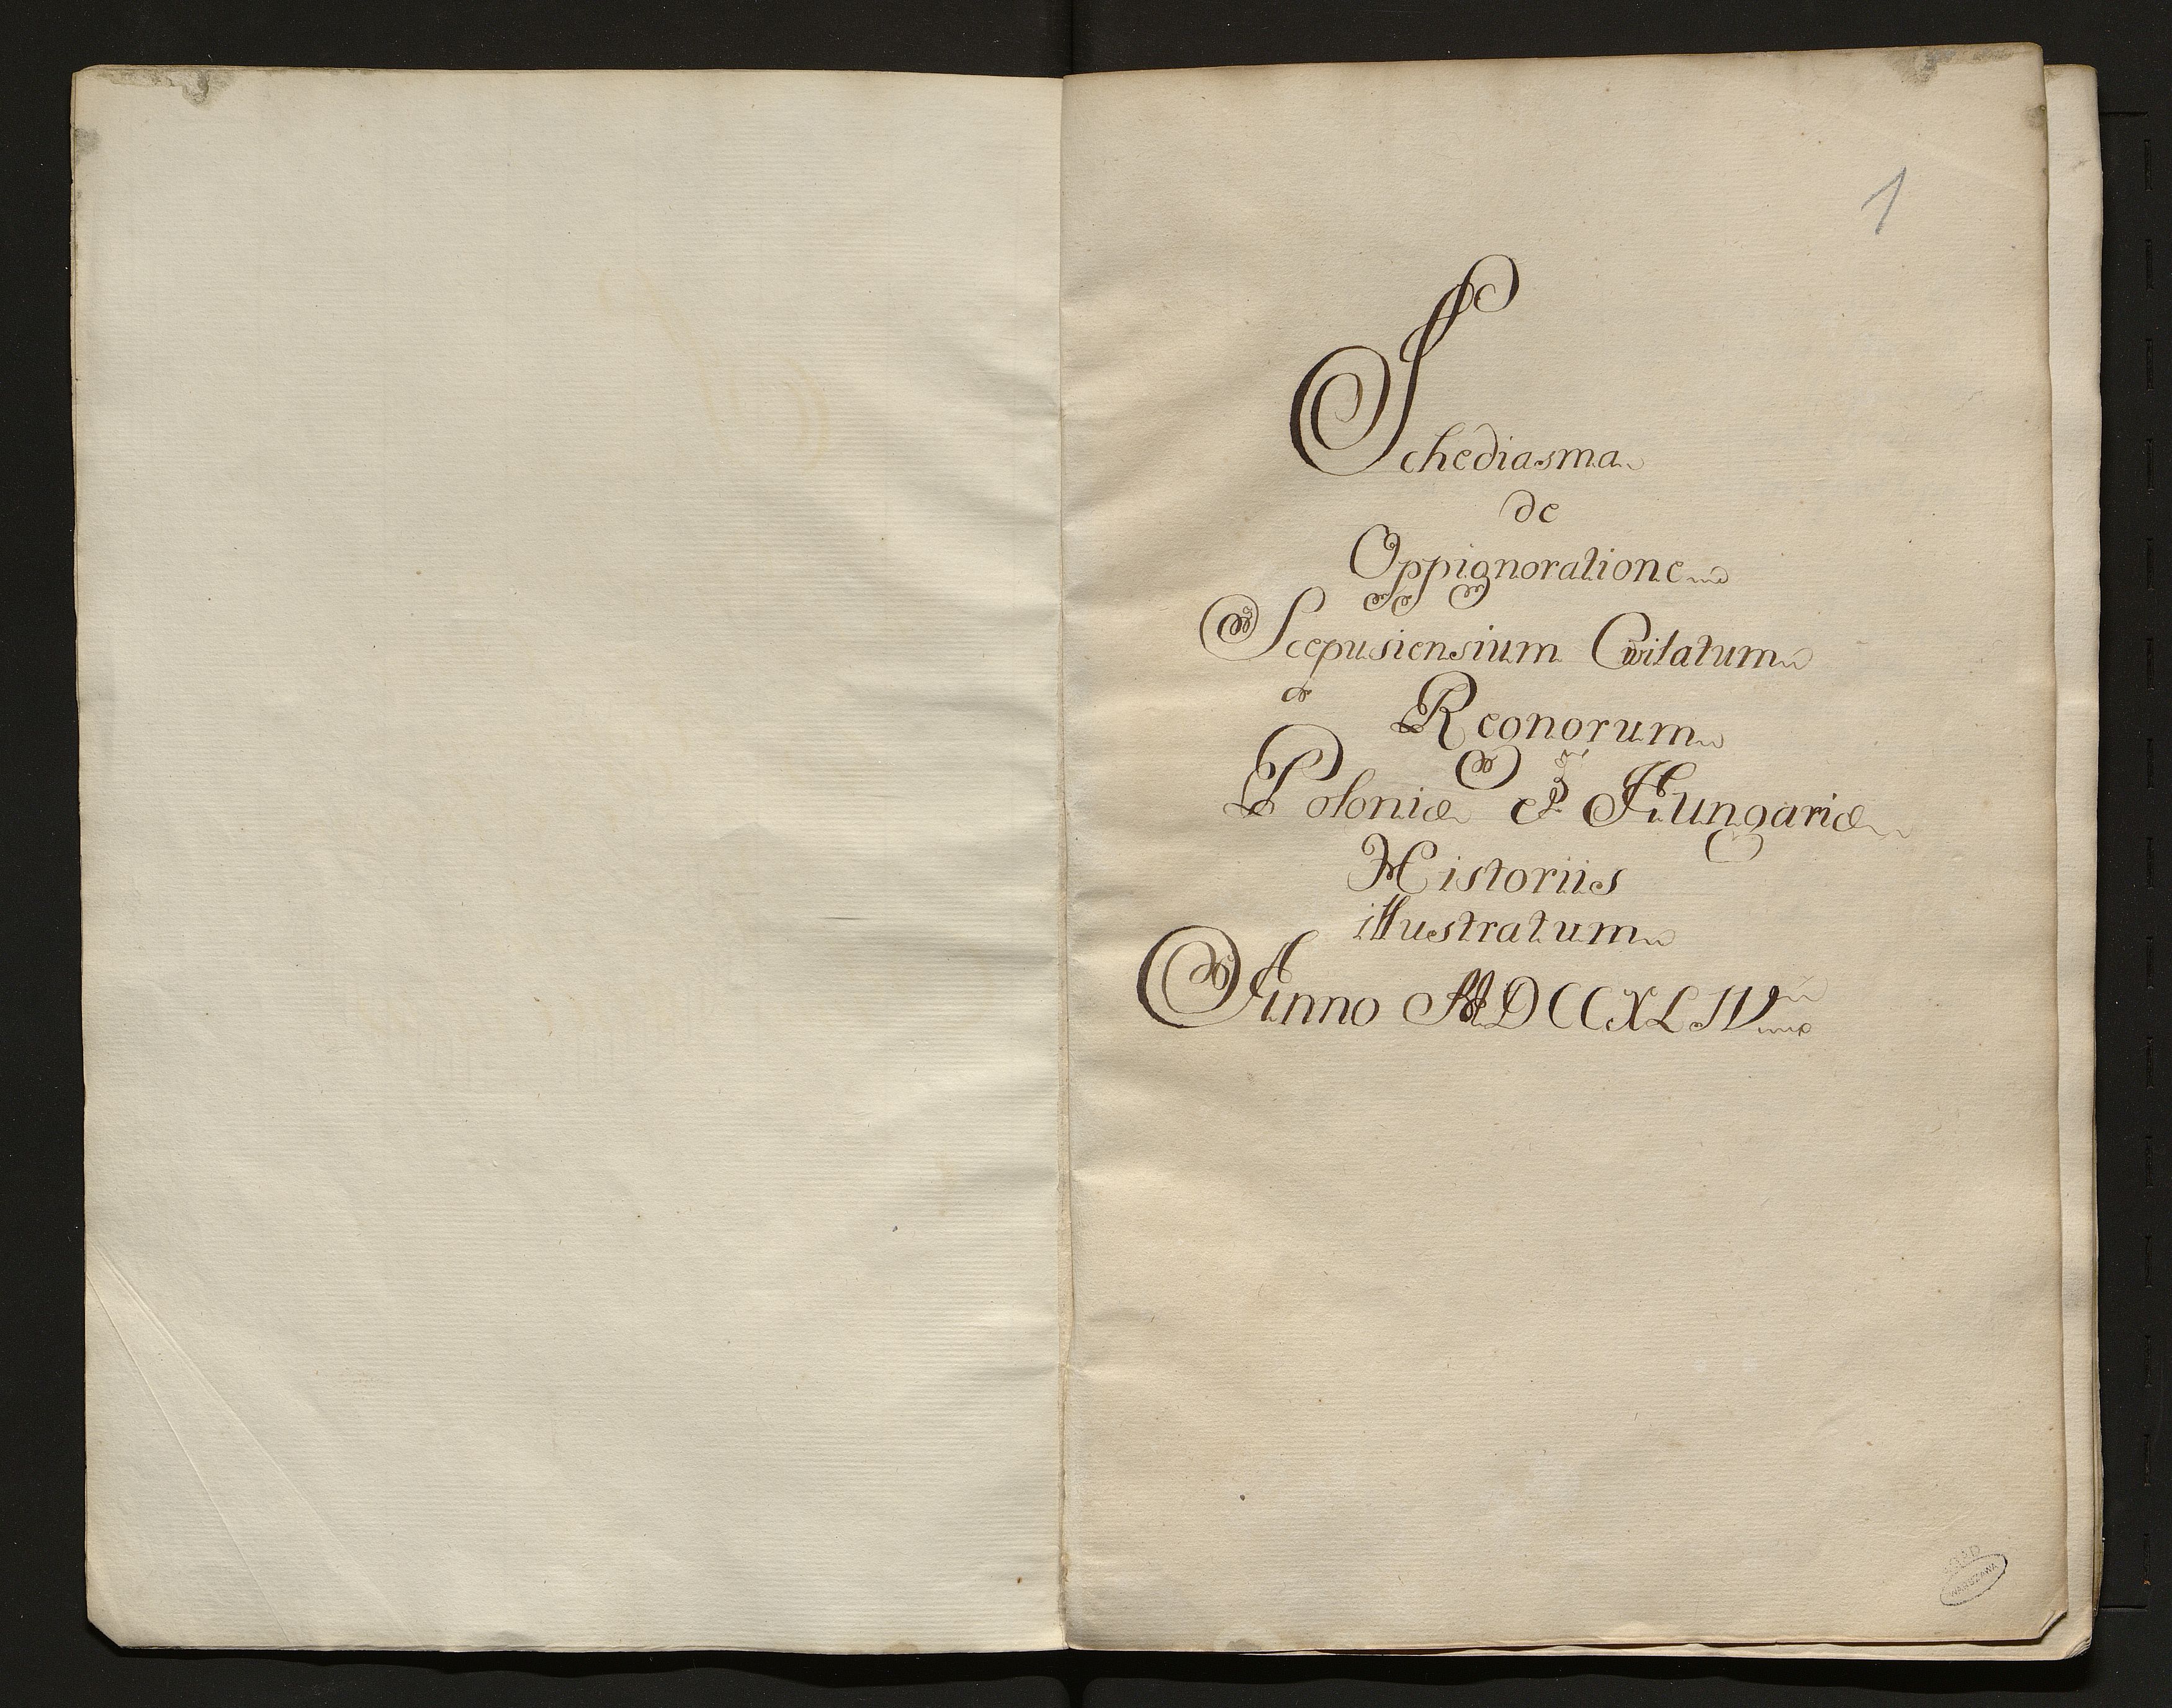 1
Schediasma
de
Oppignoratione
Scepusiensium Civitatum
Regnorum
Poloniæ et Hungariæ
Historiis
illustratum
Anno MDCCXLIV
WARSZAWA